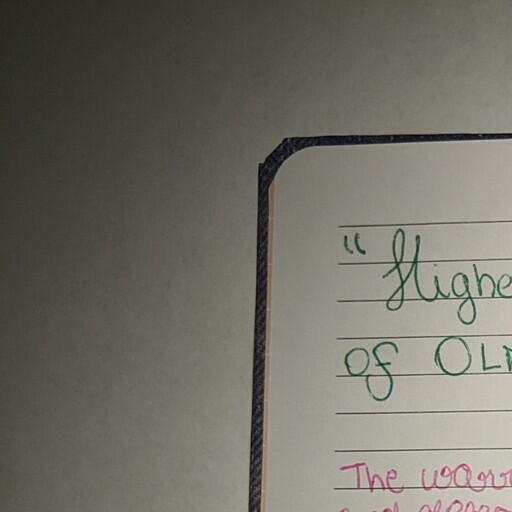 " Highe
of OLD
The warr